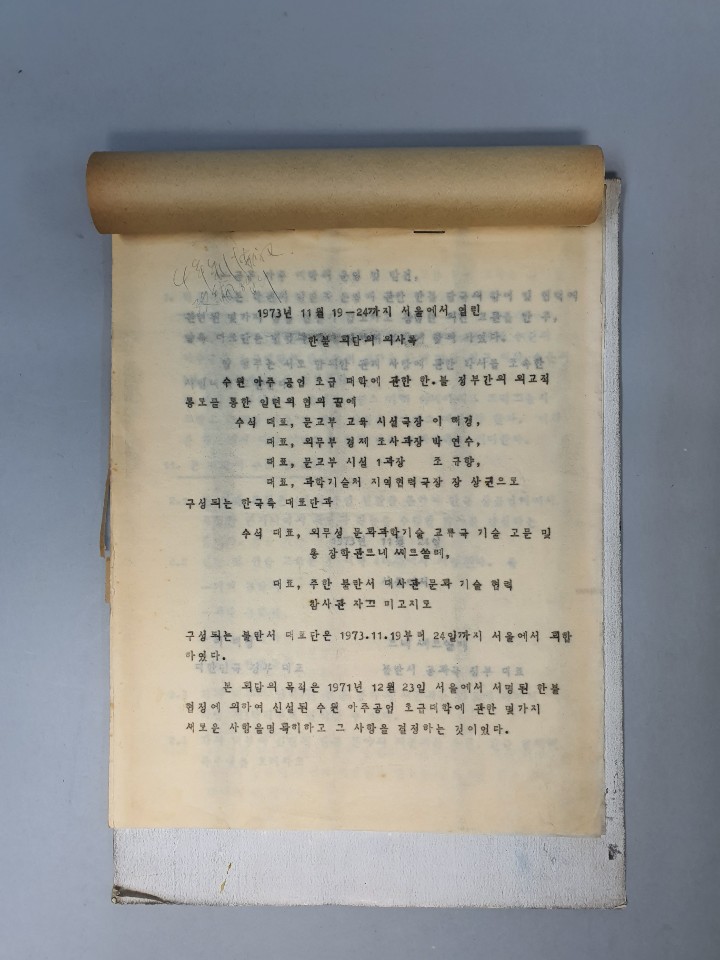 1973년 11월 19-24까지 서울에서 열린
한불 회담의 의사록
수원 아주 공업 초급 대학에 관한 한.불 정부간의 외교적
통로를 통한 일련의 협의 끝에
수석 대표, 문교부 교육 시설국장 이 매경,
대표, 외무부 경제 조사과장 박 연수,
대표, 문교부 시설 1과장 조 규향,
대표, 과학기술처 지역협력국장 장 상균으로
구성되는 한국측 대표단과
수석 대표, 외무성 문화과학기술 교류국 기술 고문 및
통 장학관르네 씨르쏠레,
대표, 주한 불란서 대사관 문화 기술 협력
참사관 자끄 미고지모
구성되는 불란서 대표단은 1973.11.19부터 24일까지 서울에서 회합
하였다.
본 회담의 목적은 1971년 12월 23일 서울에서 서명된 한불
협정에 의하여 신설된 수원 아주공업 초급대학에 관한 몇가지
새로운 사항을명확히하고 그 사항을 결정하는 것이었다.